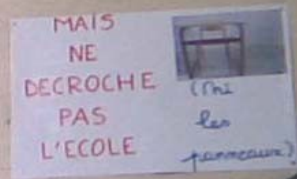 MAIS
NE
DECROCHE
PAS
L'ECOLE
(Ni
les
panneaux)